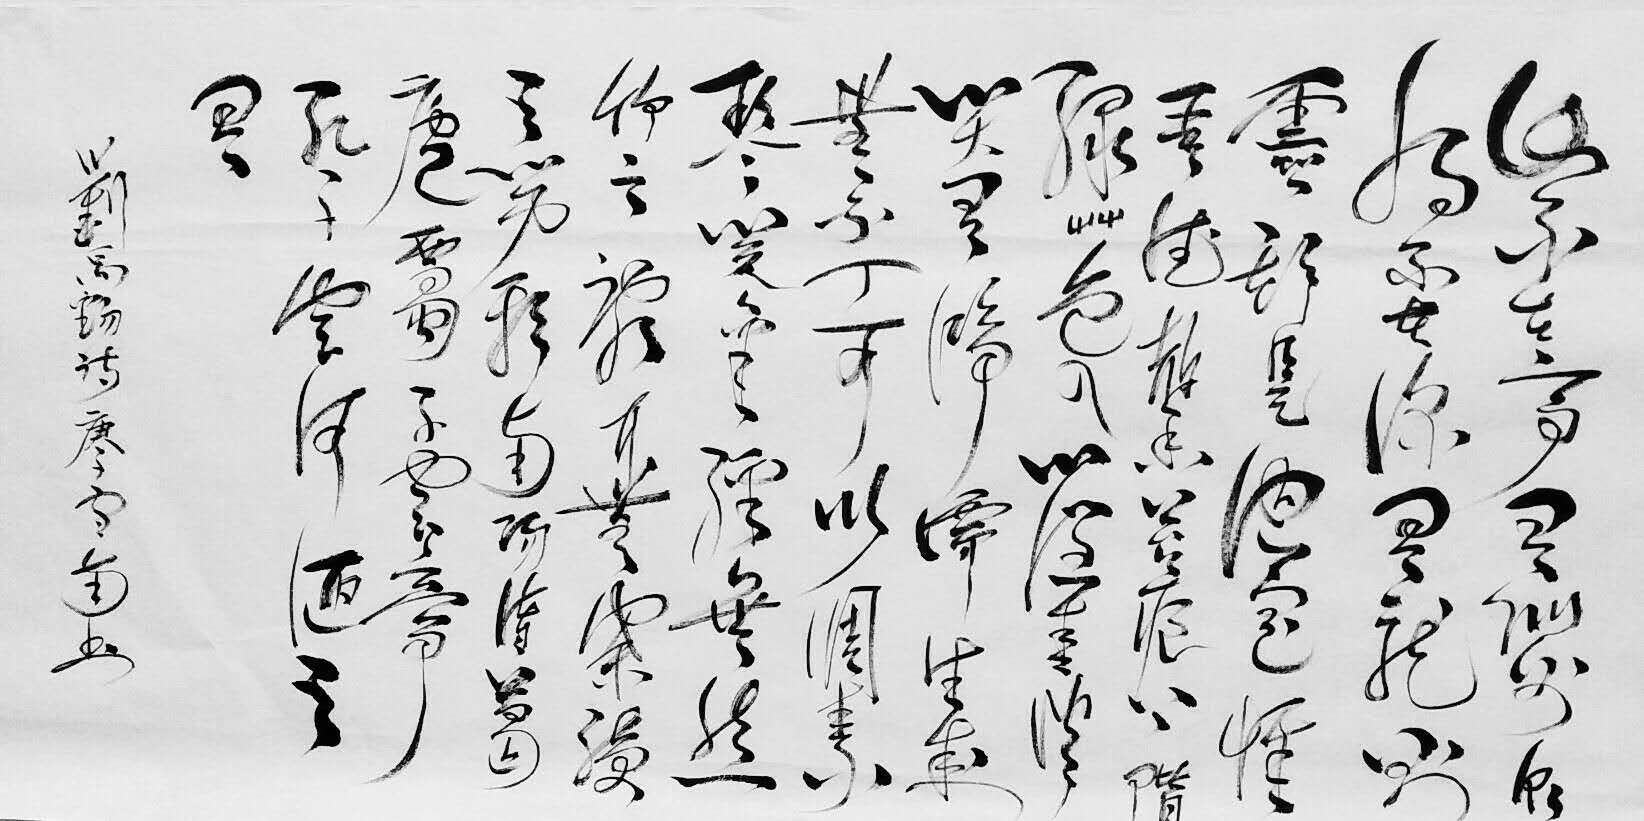 山不在高有仙則名
水不在深有龍則
靈斯是陋室惟
吾德馨苔痕上階
綠艸色入簾青談
笑有鴻儒往來
無白丁可以調素
琴閱金經無絲
竹之亂耳無案牘
之勞形南陽諸葛
廬西蜀子雲亭
孔子云何陋之
有
劉禹錫詩